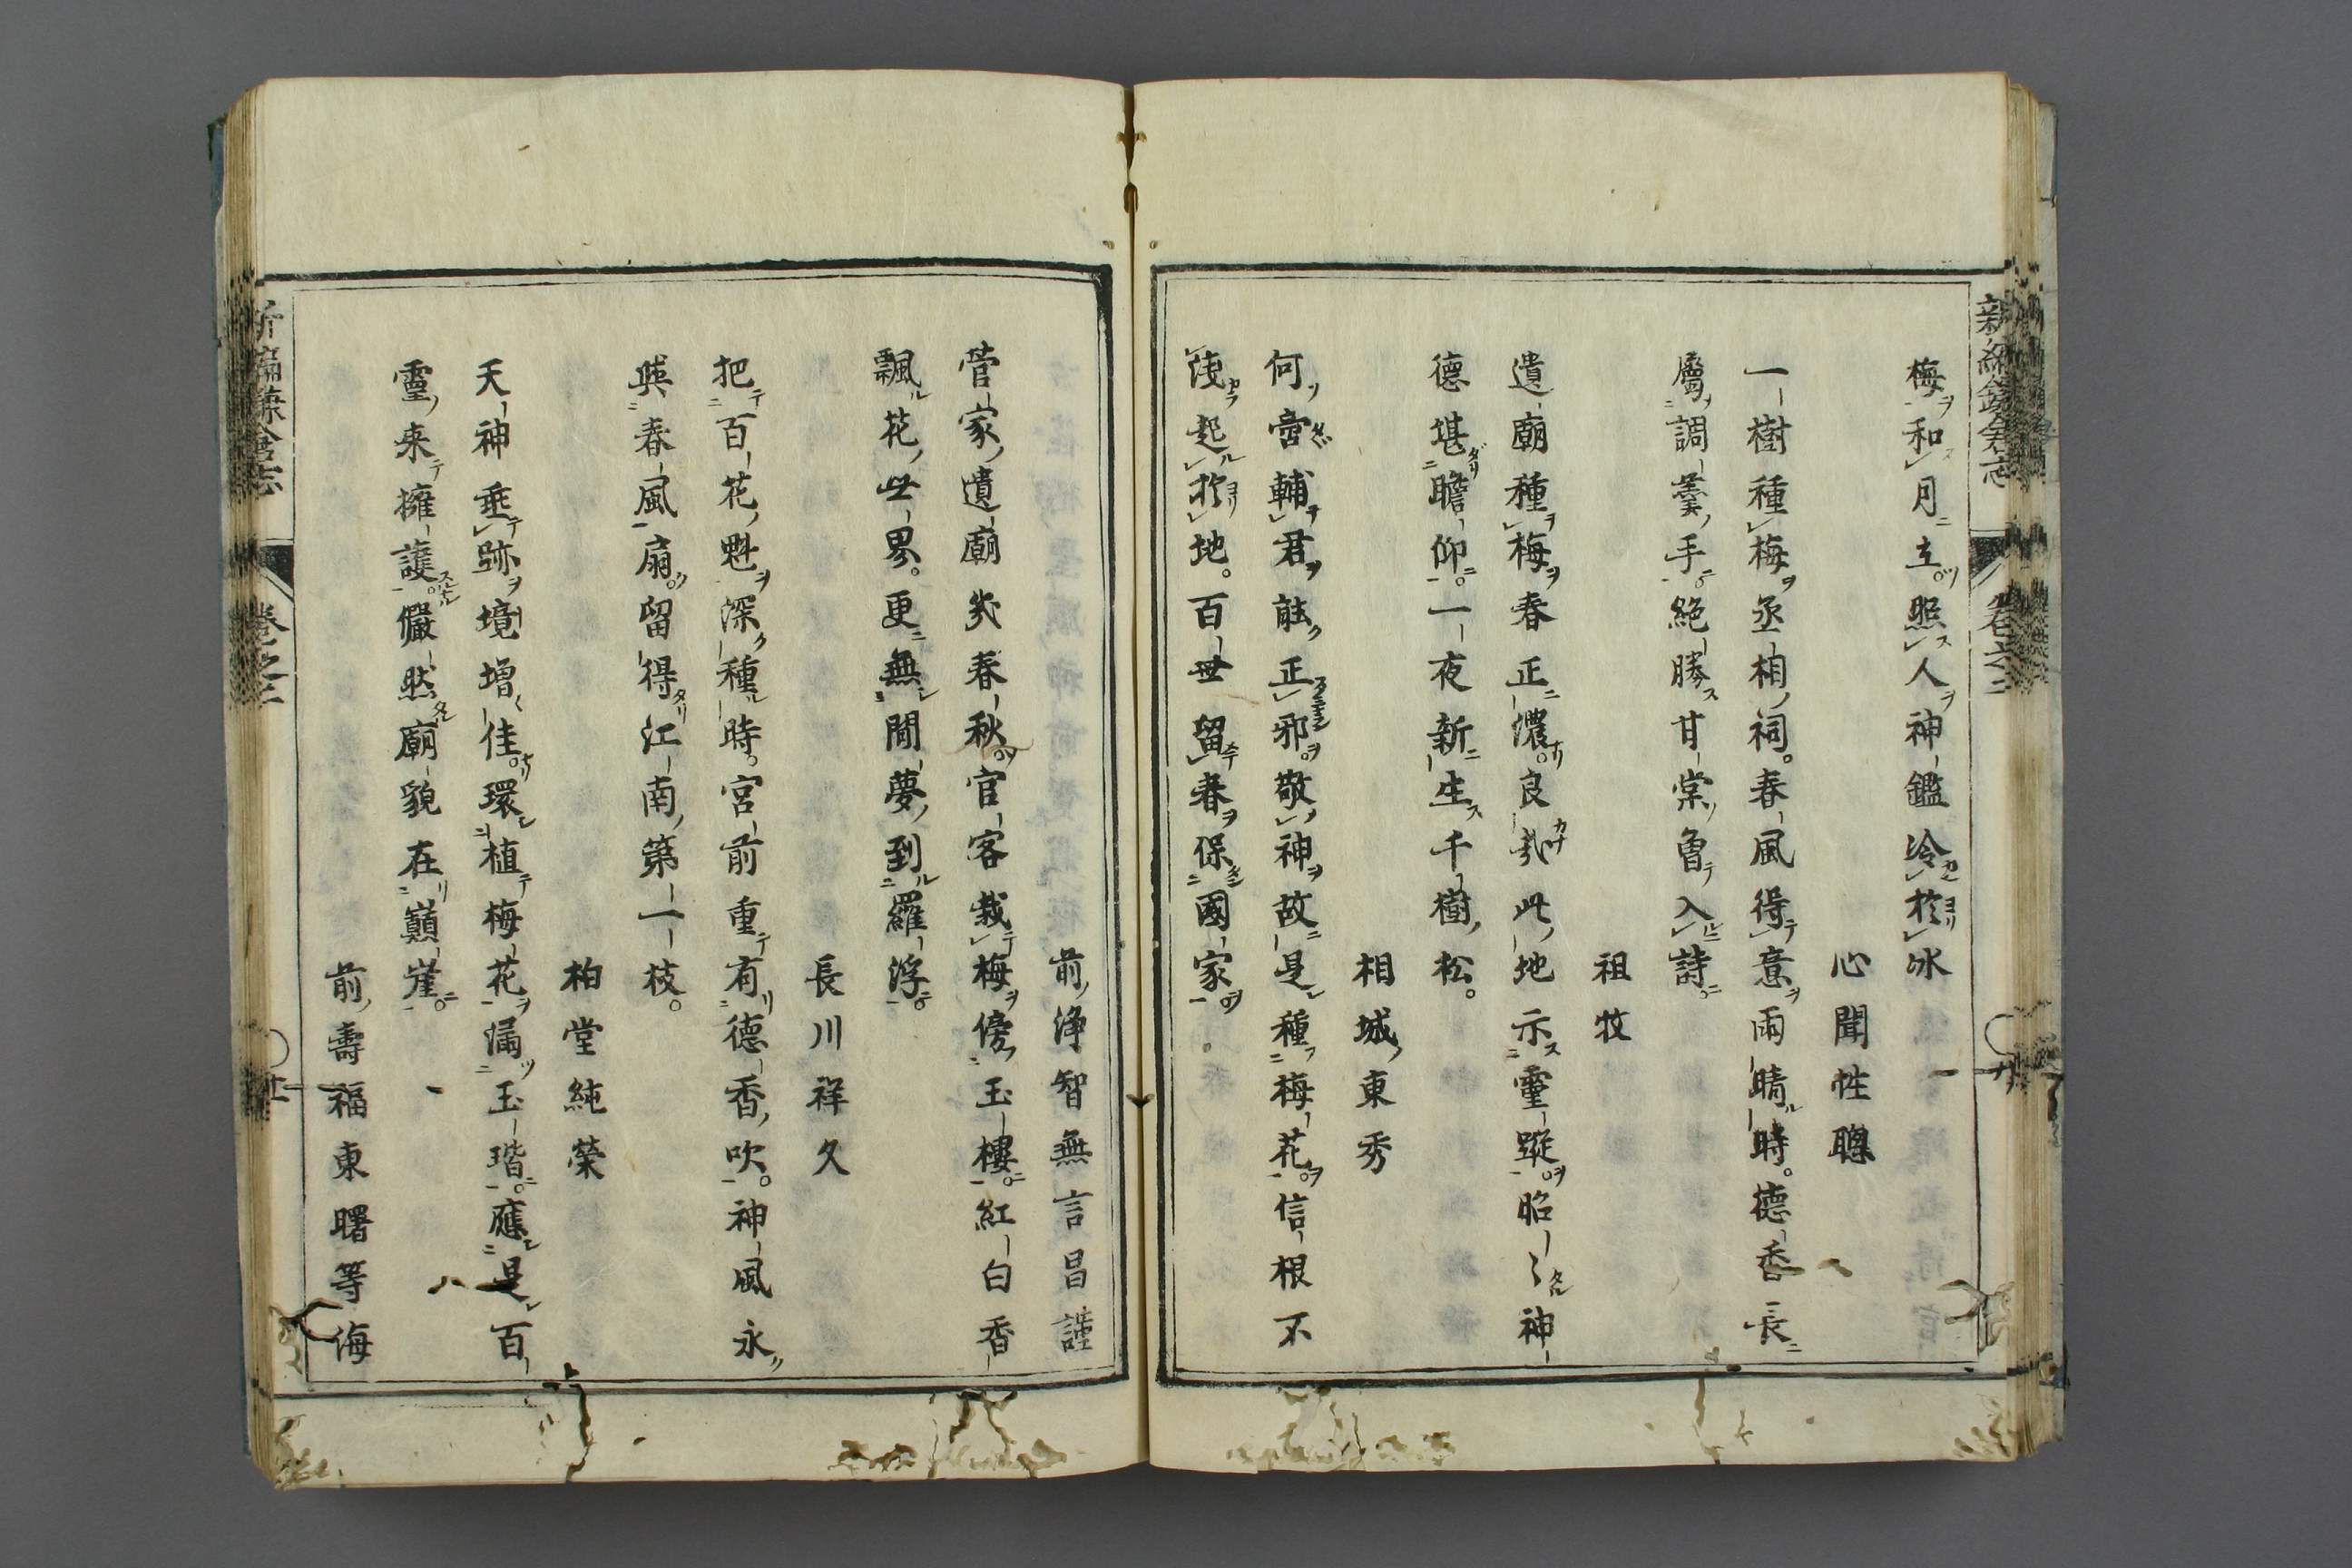 梅和月立照人神鑑冷於冰
心聞性聰
一樹種梅丞相祠。春風得意雨晴時。德香長
屬調羹手。絶勝甘棠魯入詩。
祖牧
遺廟種梅春正濃。良哉此地示靈蹤。昭〻神
德堪瞻仰。一夜新生千樹松。
相城東秀
何啻輔君能正邪。敬神故是種梅花。信根不
淺起於地。百世留春保國家。
前淨智無言昌謹
菅家遺廟幾春秋。官客栽梅傍玉樓。紅白香
飄花世界。更無閒夢到羅浮。
長川祥久
把百花魁深種時。宮前重有德香吹。神風永
與春風扇。留得江南第一枝。
柏堂純榮
天神垂跡境增佳。環植梅花滿玉堦。應是百
靈来擁護。儼然廟貌在巓崖。
前壽福東曙等海
新編鎌倉志
卷之二